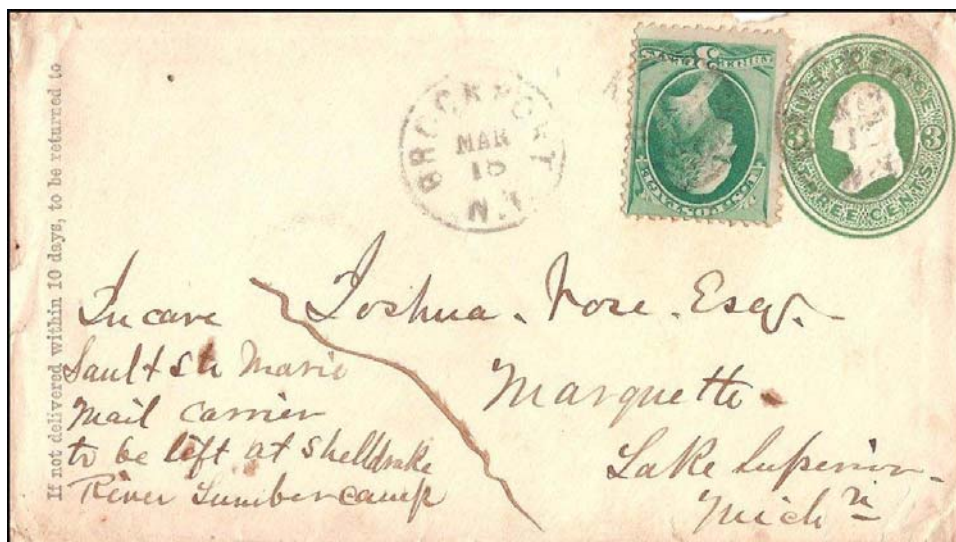 If not delivered within 10 days, to be returned to
BROCKPORT
MAR
N.Y.
U.S. POSTAGE
3 3
THREE CENTS
3
Joshua. Rose. Esq.
Marquette.
Lake Superior
Mich
In care
Sault Ste Marie
Mail carrier
to be left at Shelldrake
River Lumber camp